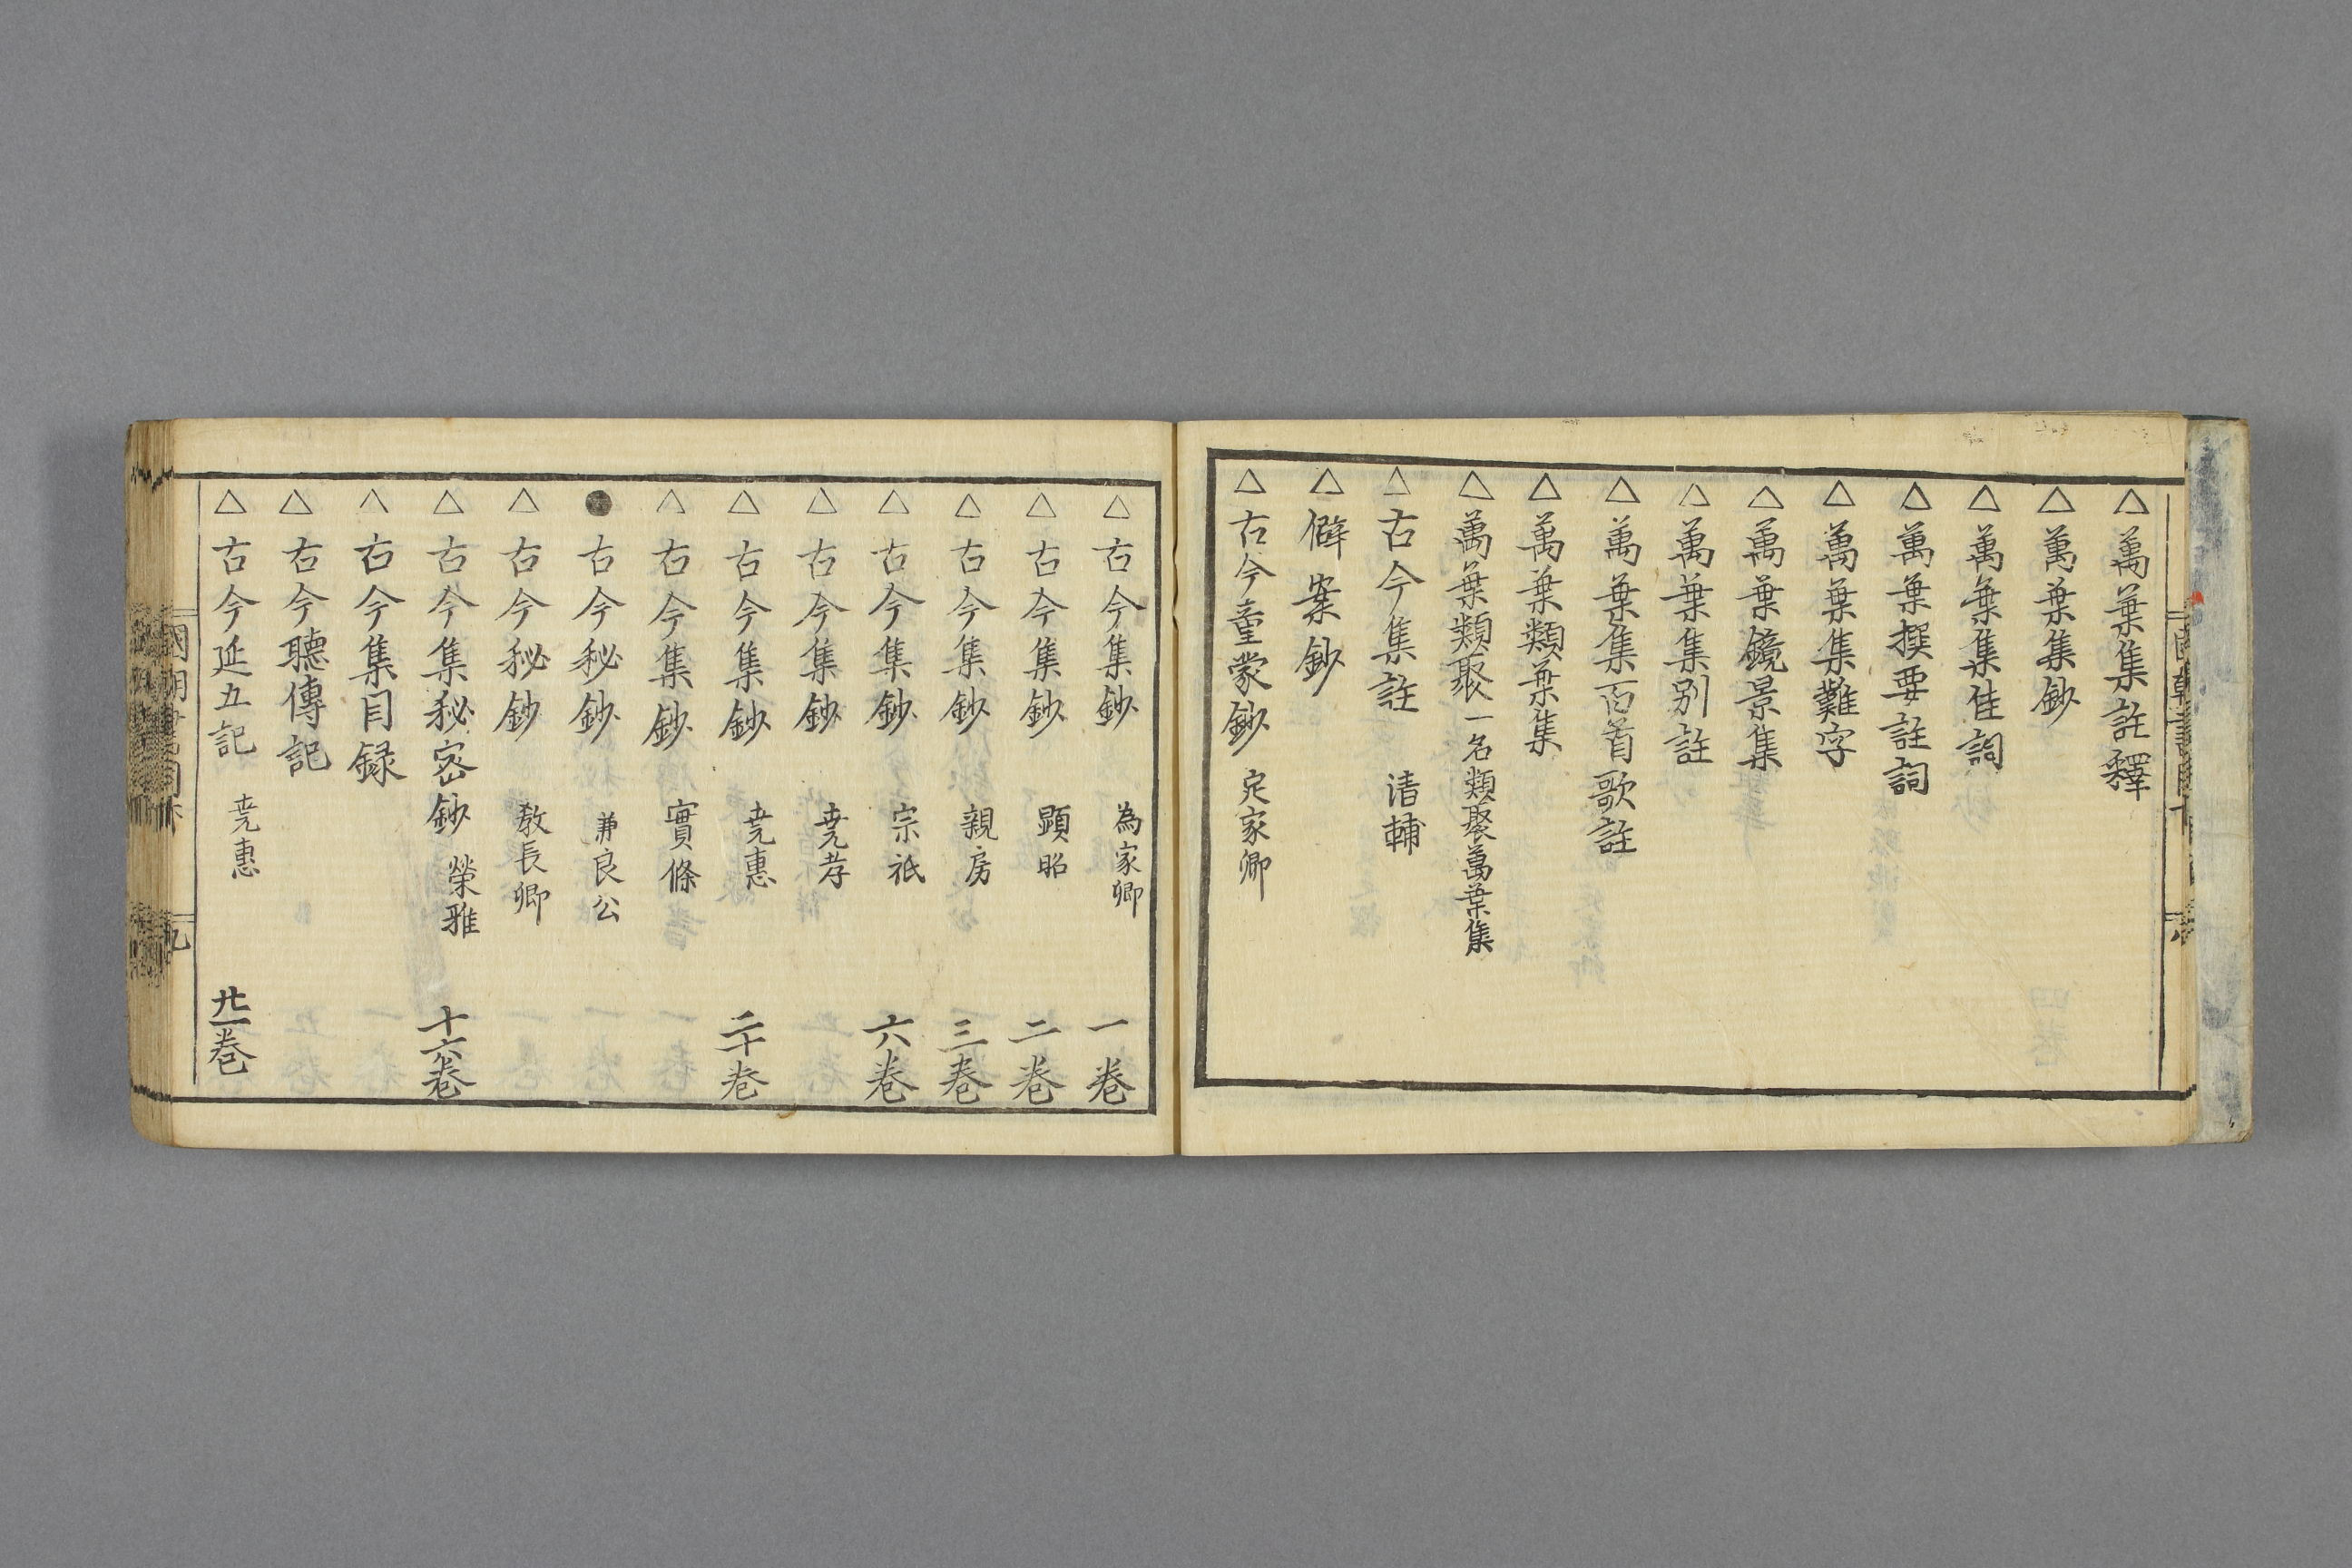 △萬葉集註釋
△萬葉集鈔
△萬葉集佳詞
△萬葉撰要註詞
△萬葉集難字
△萬葉鏡景集
△萬葉集別註
△萬葉集百首歌註
△萬葉類葉集
△萬葉類聚 一名類聚萬葉集
△古今集註 清輔
△僻案鈔
△古今童蒙鈔 定家卿
△古今集鈔 為家卿 一巻
△古今集鈔 顕昭 二巻
△古今集鈔 親房 三巻
△古今集鈔 宗祇 六巻
△古今集鈔 尭孝
△古今集鈔 尭惠 二十巻
△古今集鈔 實條
●古今秘鈔 兼良公
△古今秘鈔 教長卿
△古今集秘密鈔 榮雅 十六巻
△古今集目録
△古今聽傳記
△古今延五記 尭惠 廿一巻
九